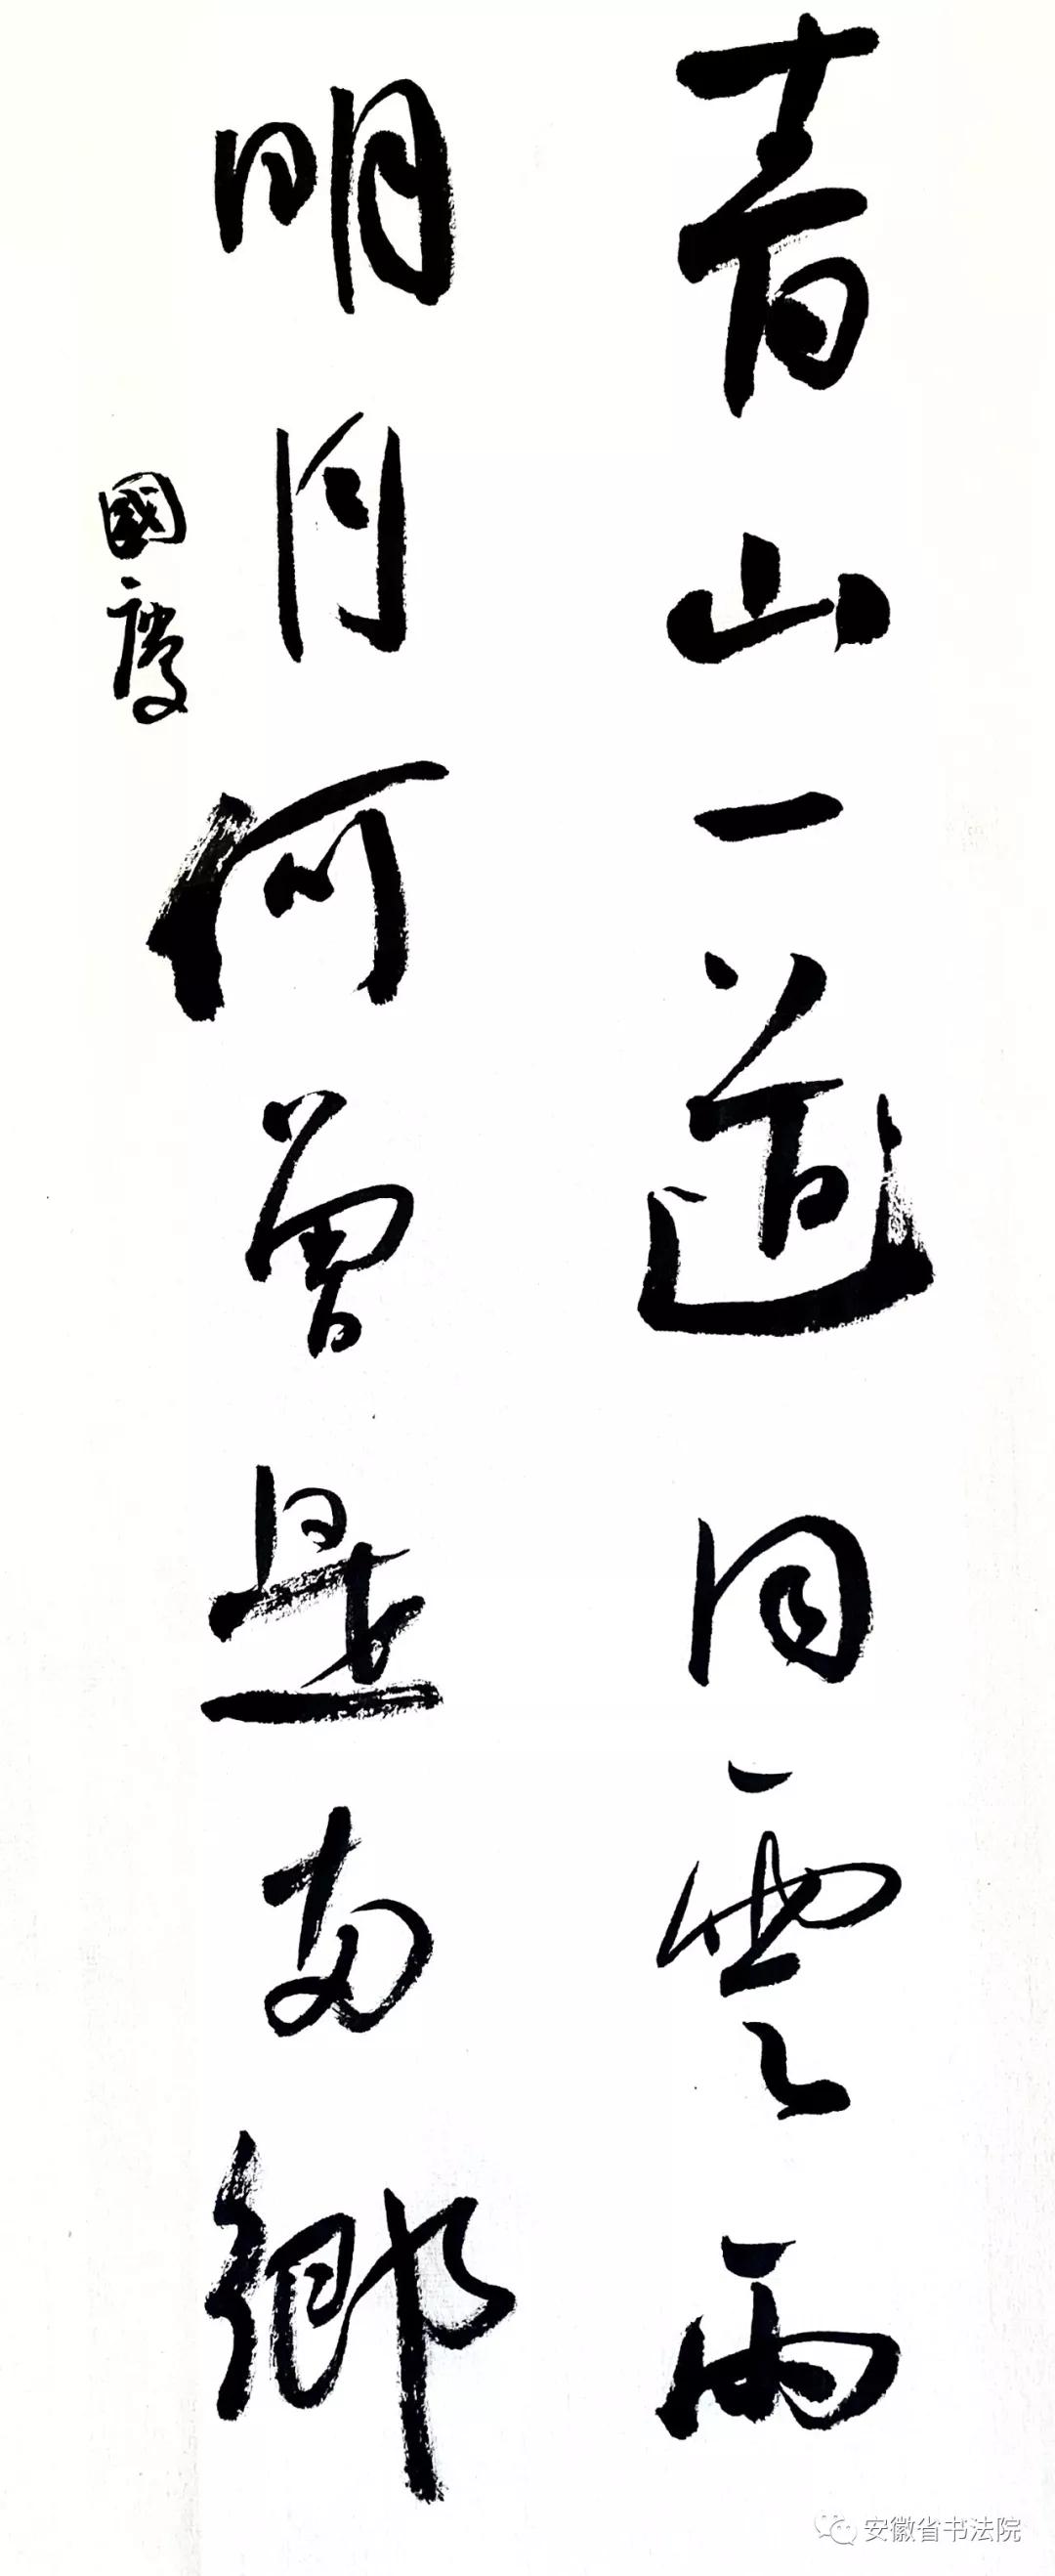 青山一道同雲雨
明月何曾是兩鄉
國慶
安徽省书法院